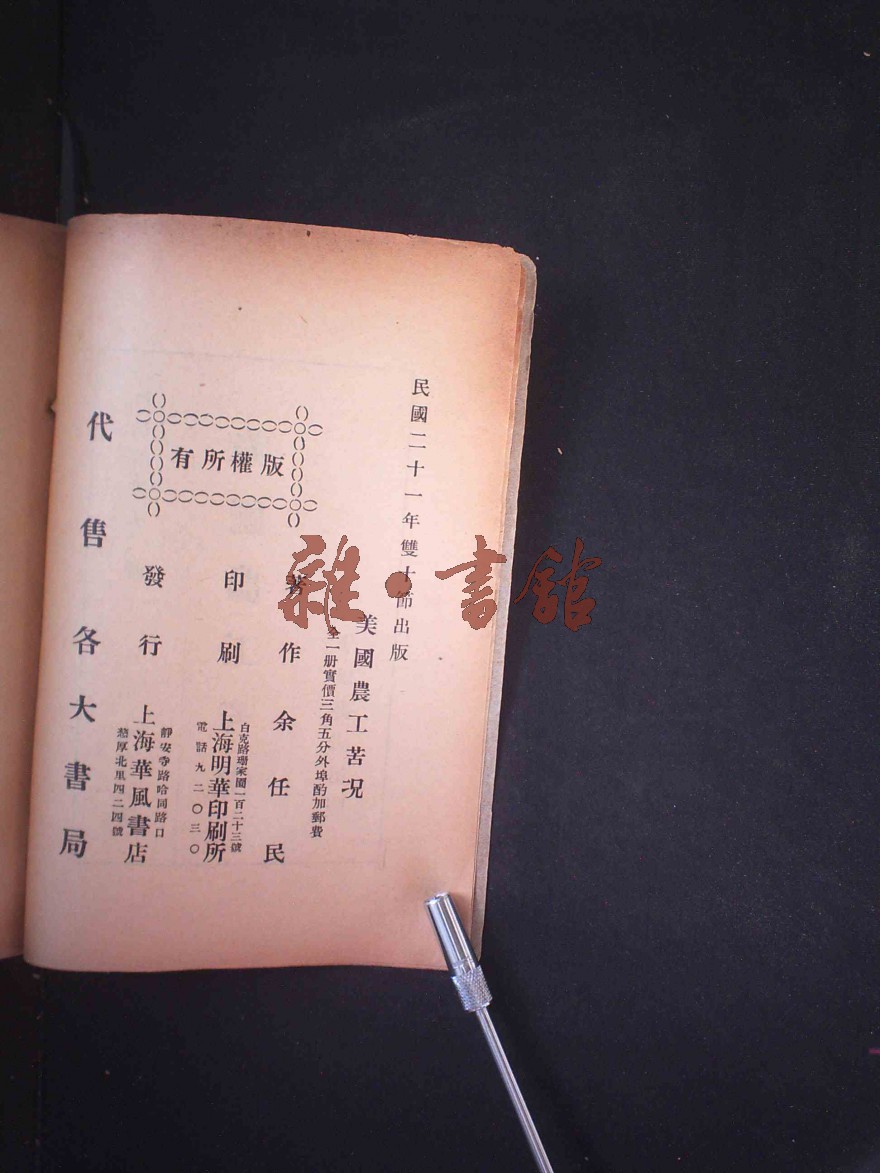 民國二十一年雙十節出版
美國農工苦况
全一册實價三角五分外埠酌加郵費
版權所有
著作 余任民
印刷 上海明華印刷所
白克路珊家園一百二十三號
電話九二〇三〇
發行 上海華風書店
靜安寺路哈同路口
慈厚北里四二四號
代售 各大書局
雜·書館